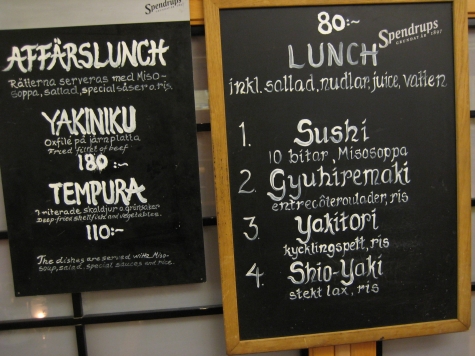 Spendrups
AFFÄRSLUNCH
Rätterna serveras med Miso-
soppa, sallad, special såser o. ris.
YAKINIKU
Oxfilé på järnplatta
Fried fillet of beef
180 :-
TEMPURA
Friterade skaldjur o grönsaker
Deep-fried shellfish and vegetables.
110:-
The dishes are served with Miso-
soup, salad, special sauces and rice.
80:-
Spendrups
GRUNDAT ÅR 1897
LUNCH
inkl. sallad, nudlar, juice, vatten
1. Sushi
10 bitar, Misosoppa
2. Gyuhiremaki
entrecôterouladen, ris
3. Yakitori
kycklingspett, ris
4. Shio-Yaki
stekt lax, ris